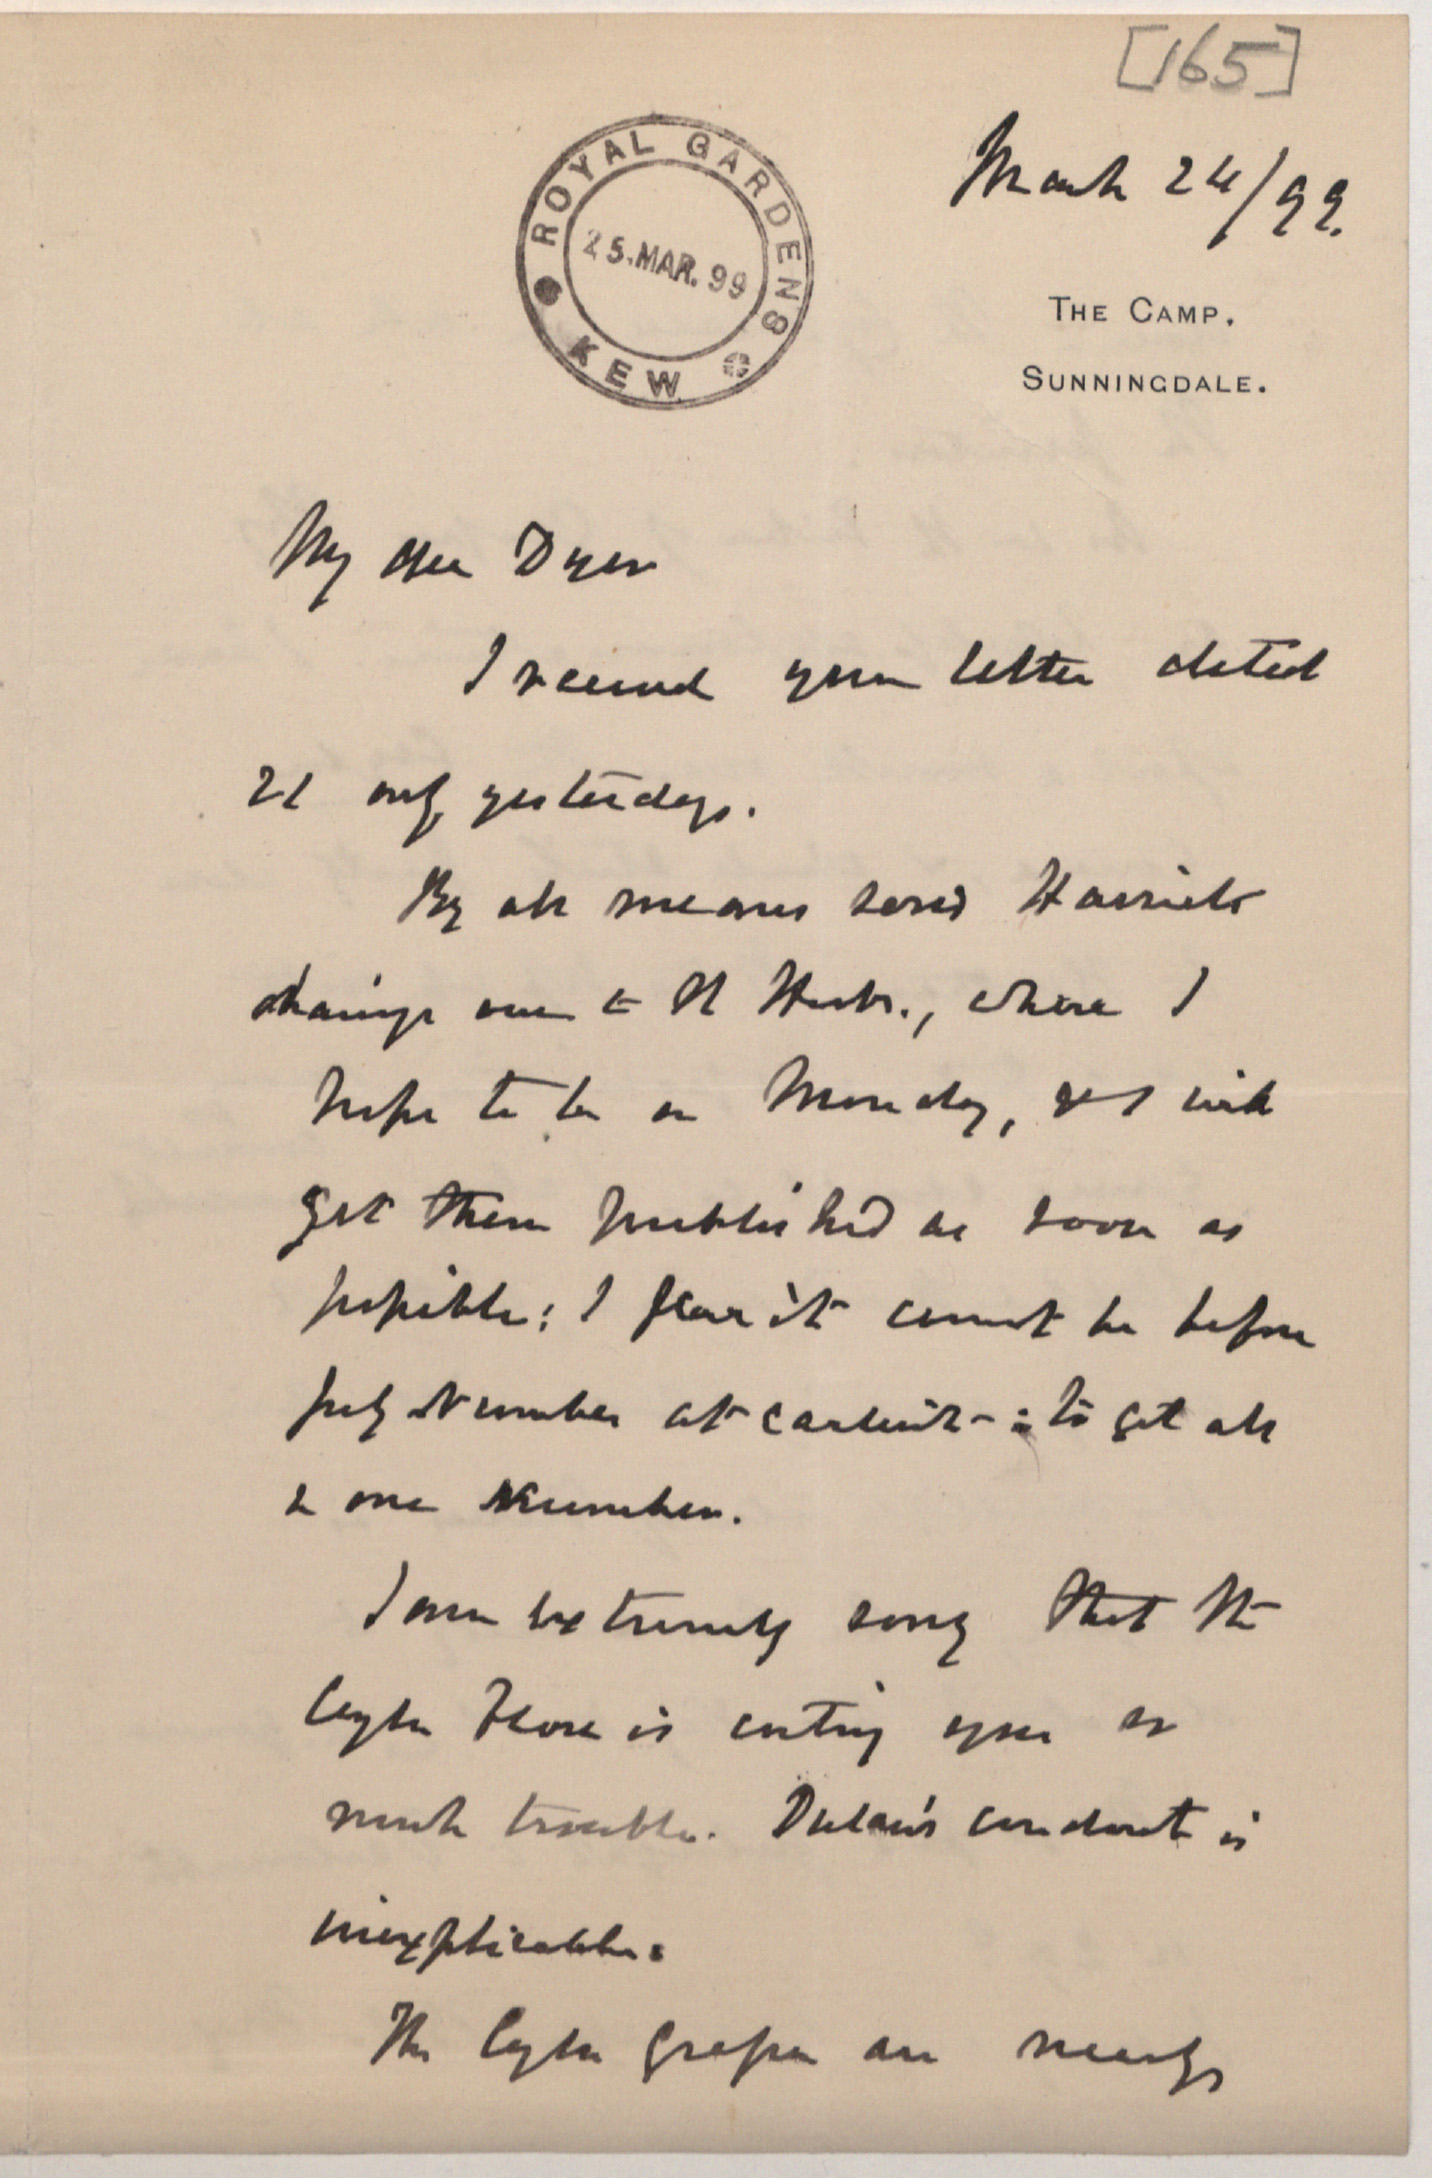 [165]
March 24/99.
ROYAL GARDENS
25.MAR.99
KEW
THE CAMP.
SUNNINGDALE.
My dear Dyer
I received your letter dated
21 only yesterday.
By all means send Harriet's
drawings over to the Herb., where I
hope to be on Monday, & I will
get them published as soon as
possible: I fear it cannot be before
July Number at earliest - : to get all
in one Number.
I am extremely sorry that the
Ceylon Flora is costing you so
much trouble. Dulau's conduct is
inexplicable.
The Ceylon Grasses are nearly